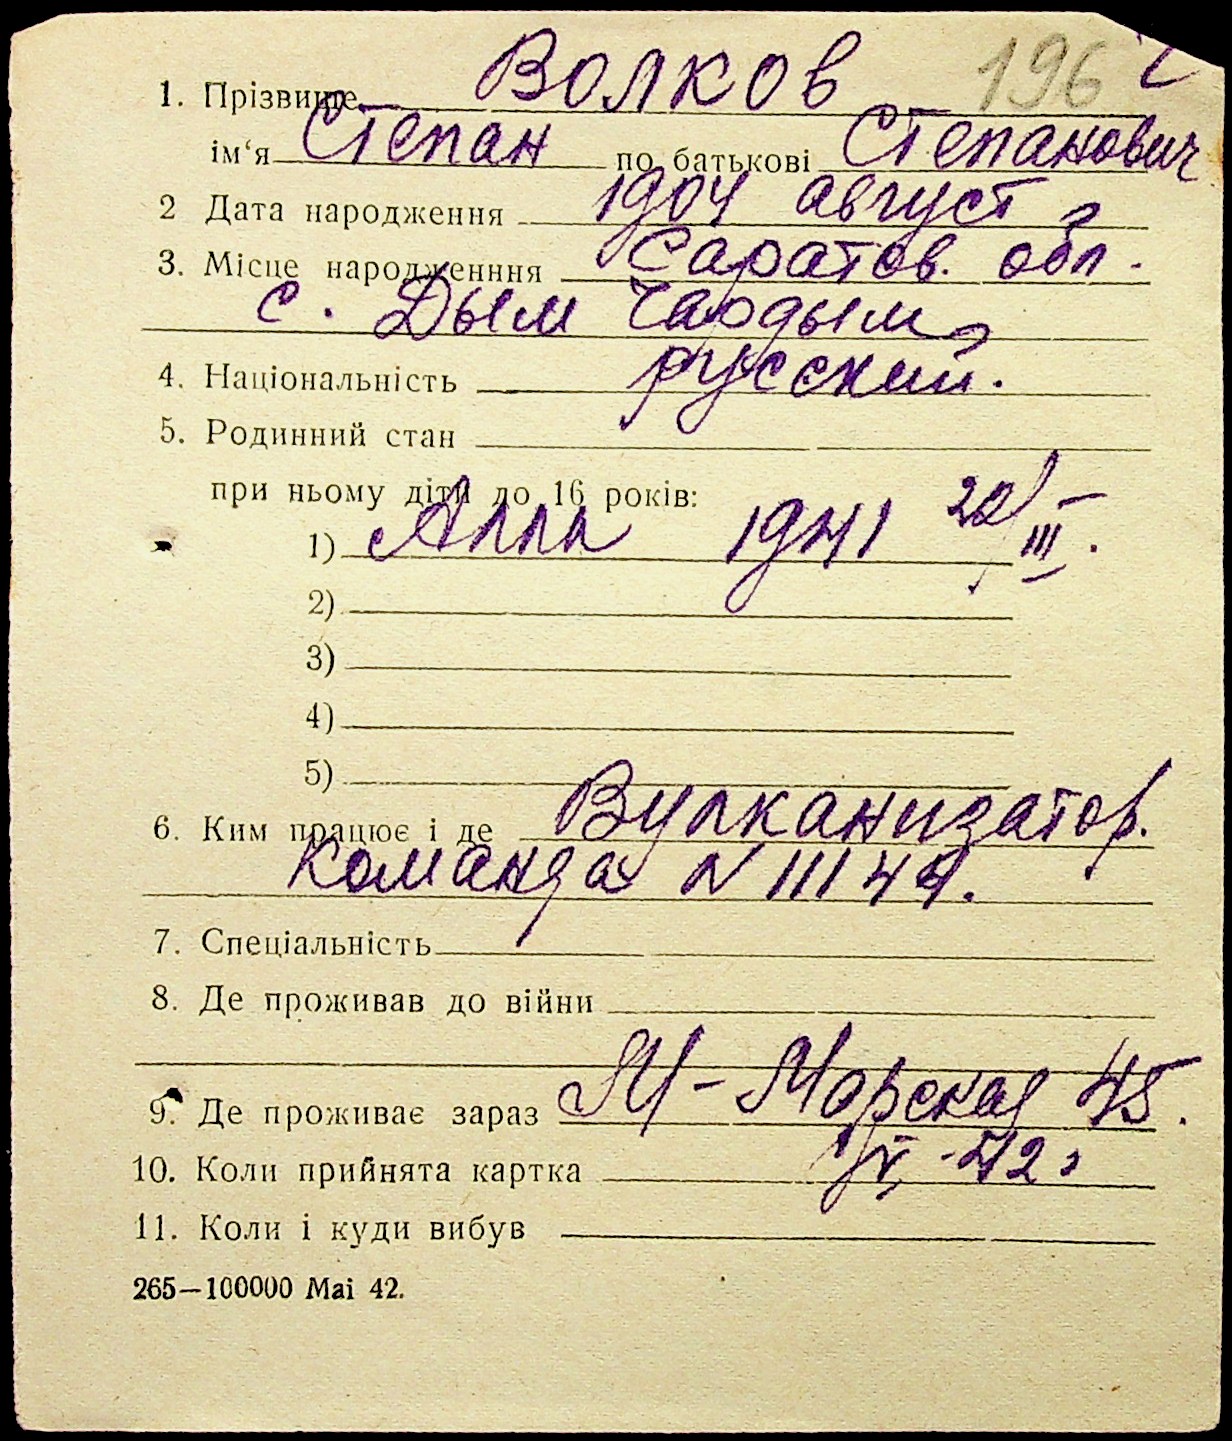 196
1. Прізвище Волков
ім‘я Степан по батькові Степанович
2 Дата народження 1904 август
3. Місце народженння Саратов. обл.
с. Дым Чардым
4. Національність русский.
5. Родинний стан
при ньому діти до 16 років:
1) Алла 1941 20/III.
2)
3)
4)
5)
6. Ким працює і де Вулканизатор.
команда N III 44.
7. Спеціальність
8. Де проживав до війни
9. Де проживає зараз М-Морская 45.
10. Коли прийнята картка 42
11. Коли і куди вибув
265—100000 Mai 42.